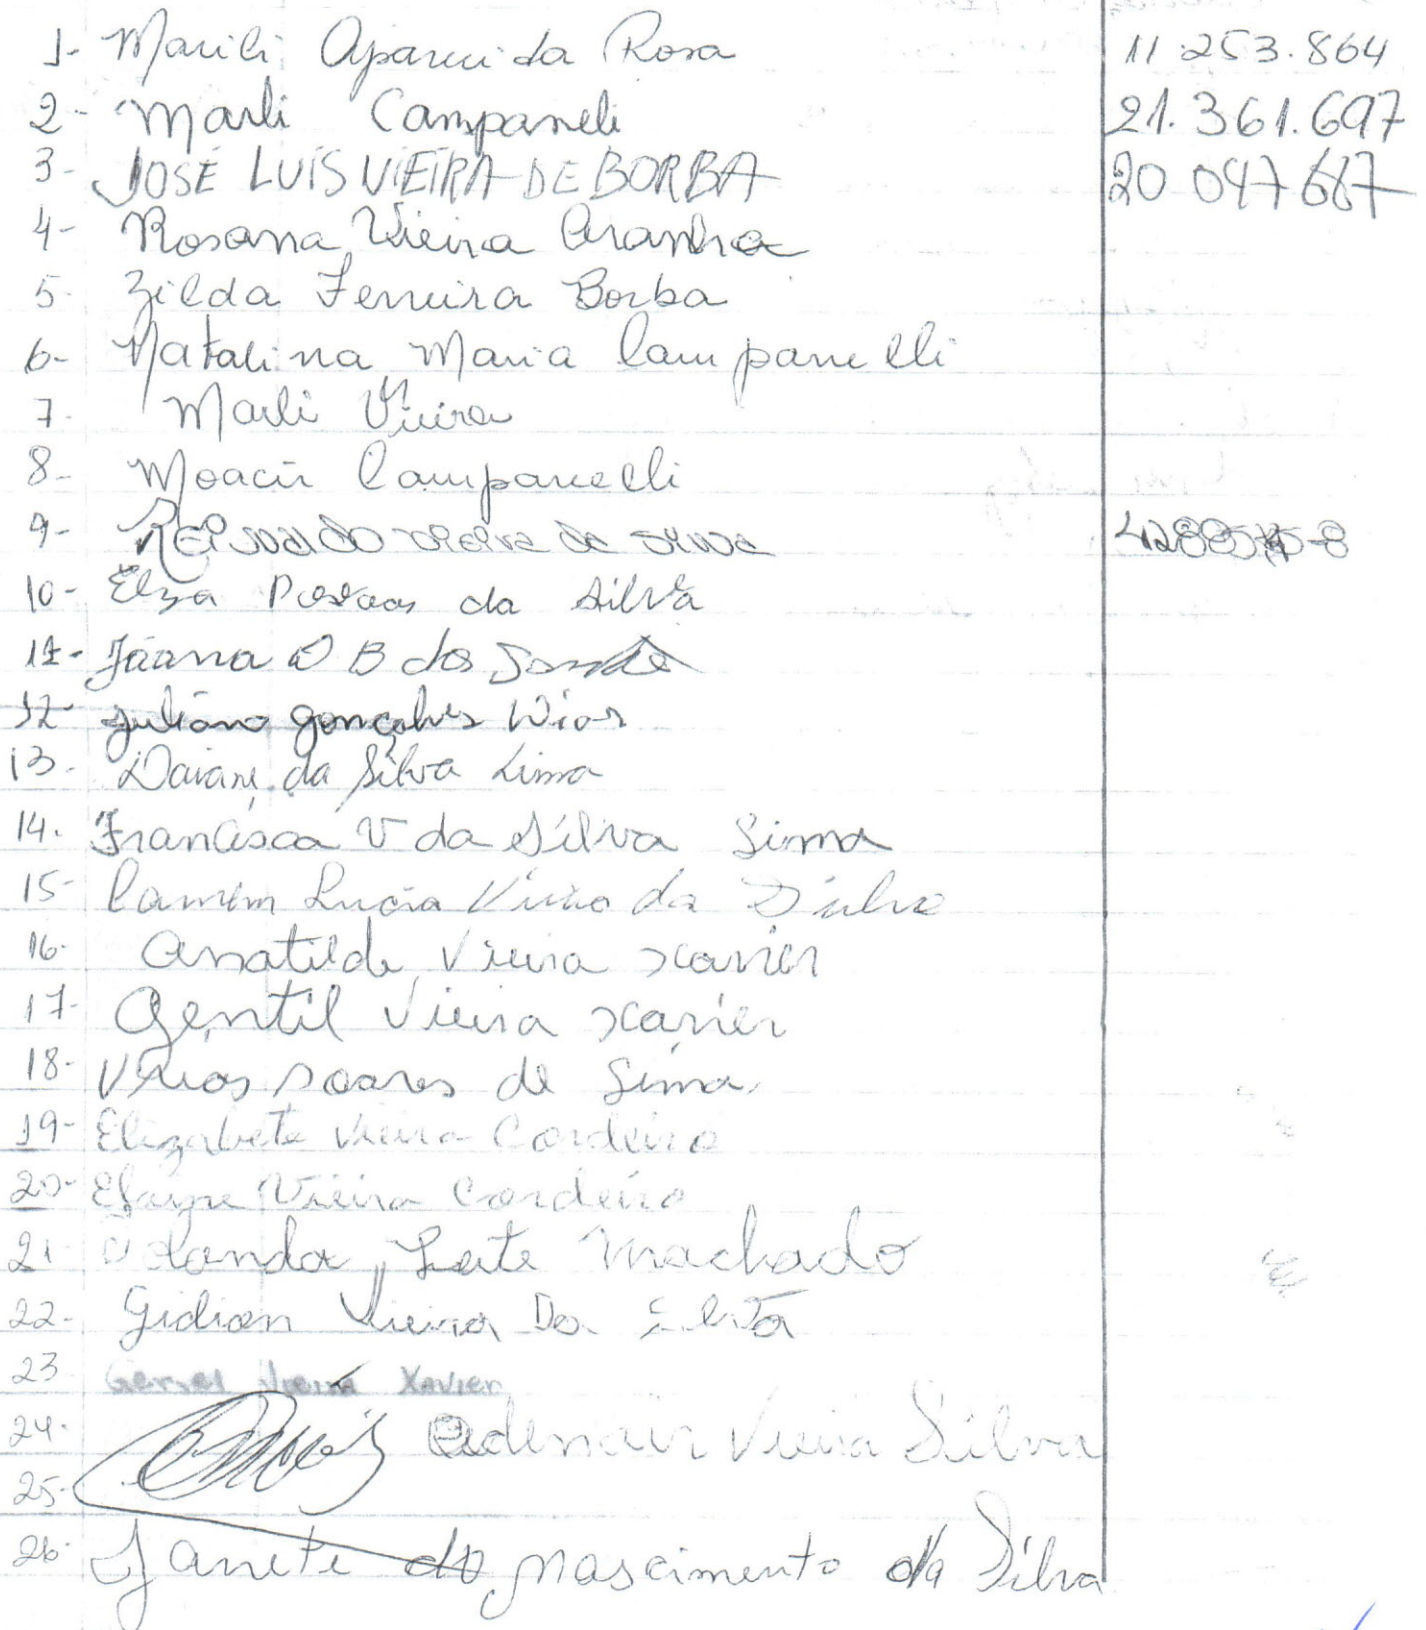 1- Marili Aparecida Rosa 11.253.864
2- Marli Campaneli 21.361.697
3- JOSÉ LUIS VIEIRA DE BORBA 20 047 667
4- Rosana Vieira Aranha
5- Zilda Ferreira Borba
6- Natalina Maria Campanelli
7- Marli Vieira
8- Moacir Campanelli
9-
10- Elza da Silva
11- Joana D B dos
12- Juliano Gonçalves
13- Daiane da Silva Lima
14. Francisca V da Silva Lima
15- Carmem Lucia da Silva
16- Anatilde Vieira Xavier
17- Gentil Vieira Xavier
18- Soares de Lima
19- Elizabete Vieira Cordeiro
20- Elayne Vieira Cordeiro
21 Leite Machado
22- Gidion Vieira Da Silva
23 Vieira Xavier
24- Adenair Vieira Silva
25-
26- Janete do Nascimento da Silva